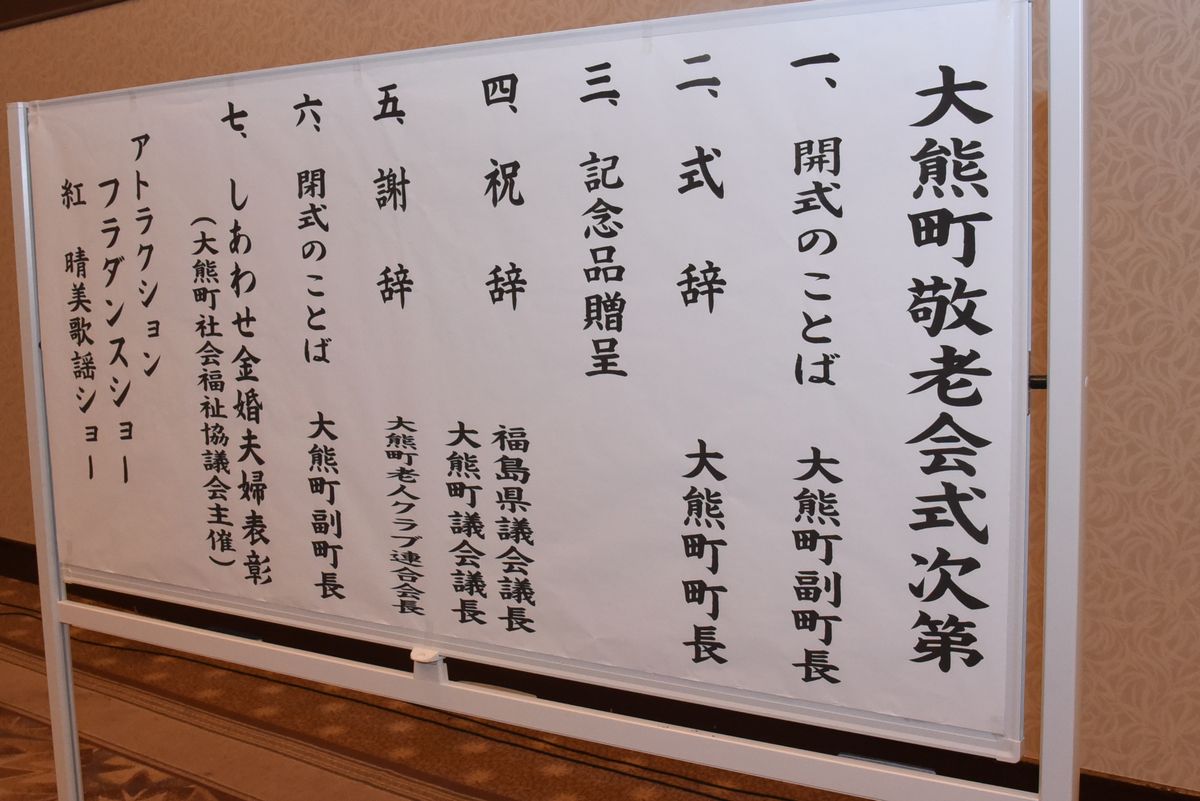 大熊町敬老会式次第
一、開式のことば　大熊町副町長
二、式辞　大熊町町長
三、記念品贈呈
四、祝辞　福島県議会議長
大熊町議会議長
五、謝辞　大熊町老人クラブ連合会会長
六、閉式のことば　大熊町副町長
七、しあわせ金婚夫婦表彰
（大熊町社会福祉協議会主催）
アトラクション
フラダンスショー
紅　晴美歌謡ショー